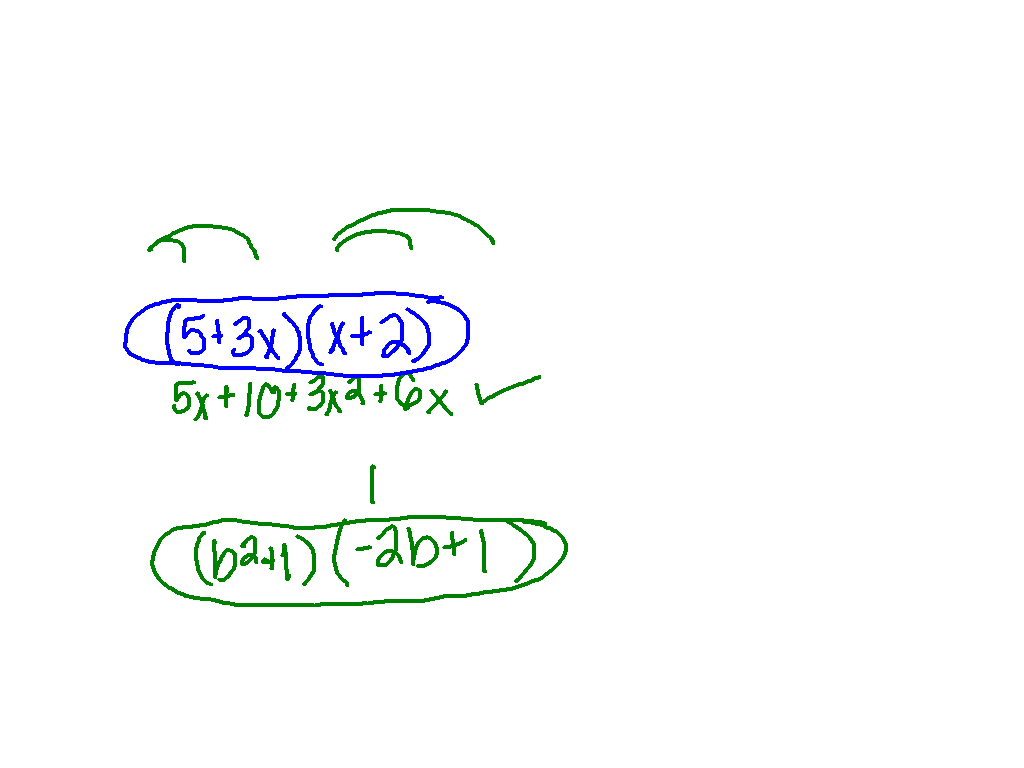 (5+3x)(x+2)
5x+10+3x²+6x ✓
1
(b²+1)(-2b+1)